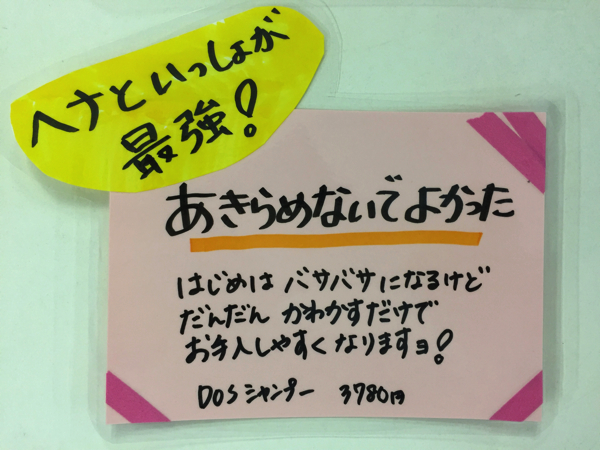 ヘナといっしょが
最強!
あきらめないでよかった
はじめは バサバサになるけど
だんだん かわかすだけで
お手入しやすくなりますョ!
DOSシャンプー 3780円